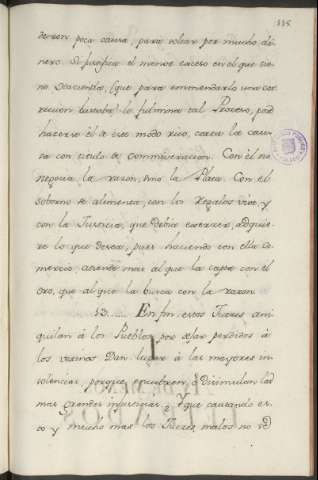 135
deren poca causa, para soltar por mucho di-
nero. Se justifica el menor exceso en el que tie-
ne Hacienda, y que para enmendarlo una cor-
reccion bastaba, le fulmina tal Proceso, para
hacerse él a ese modo rico, carea la cau-
sa con titulo de comminacion. Con él no
negocia la razon, sino la Plata. Con el
soborno se alimenta, con los Regalos vive, y
con la Justicia, que debia exercer, adquie-
re lo que desea, pues haciendo con ella co-
mercio, atiende mas al que la capta con el
Oro, que al que la busca con la razon.
13. En fin, estos Jueces ani-
quilan à los Pueblos, por dejar perdidos à
los vecinos. Dan lugar à las mayores in-
solencias, porque encubren, ò disimulan las
mas grandes injusticias, y que causando es-
to y mucho mas los Jueces malos no se